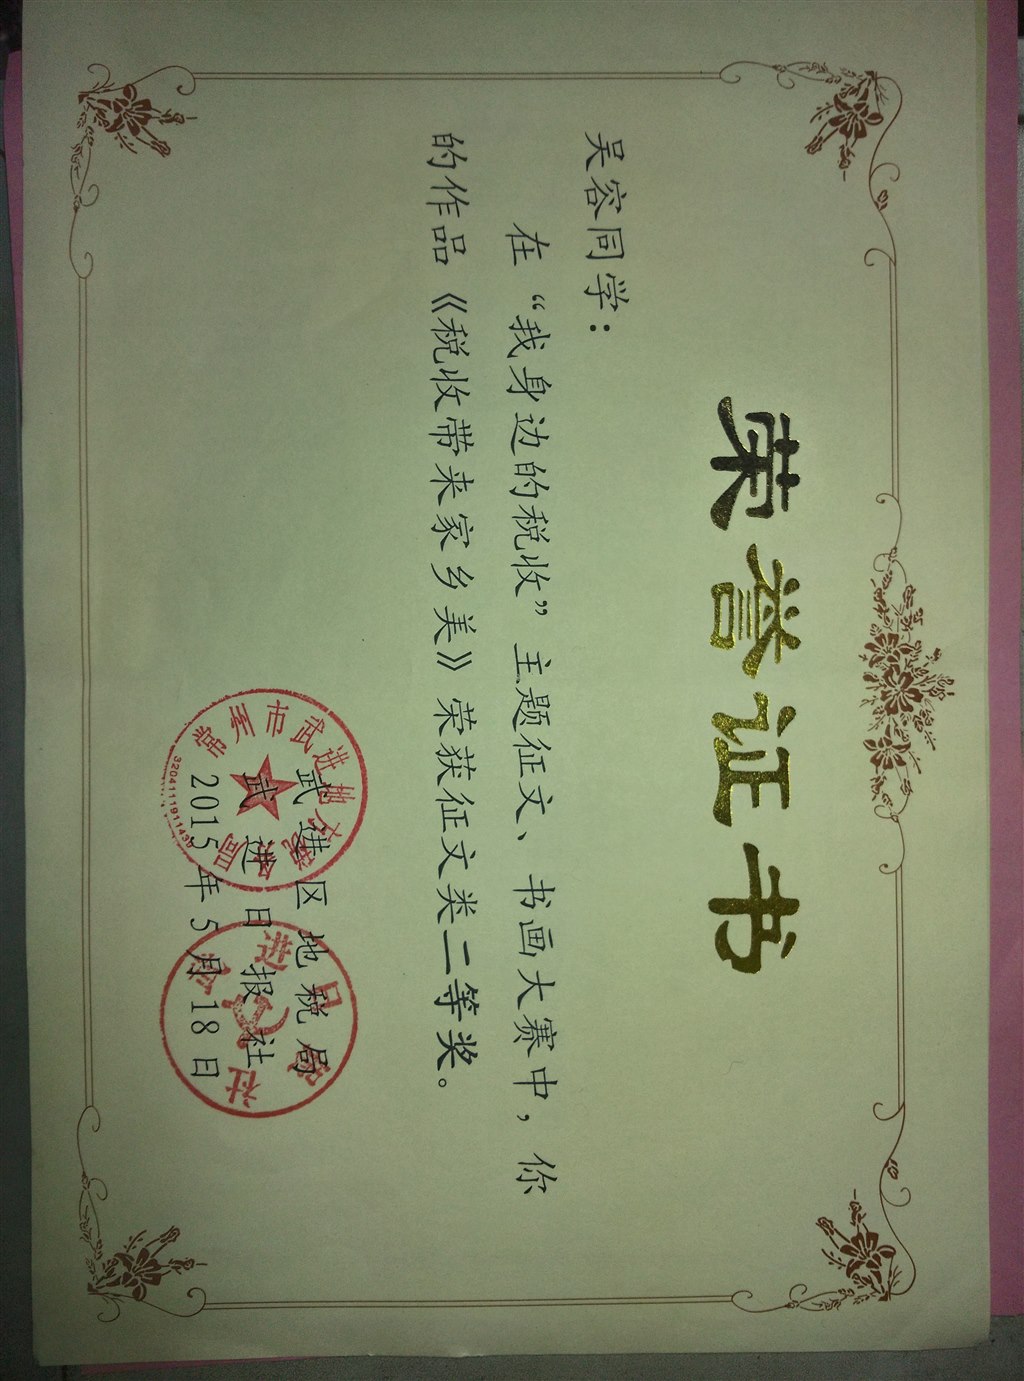 荣誉证书
吴容同学：
在“我身边的税收”主题征文、书画大赛中，你
的作品《税收带来家乡美》荣获征文类二等奖。
武进区地税局
武进日报社
2015年5月18日
常州市武进地方税务局
武进日报社